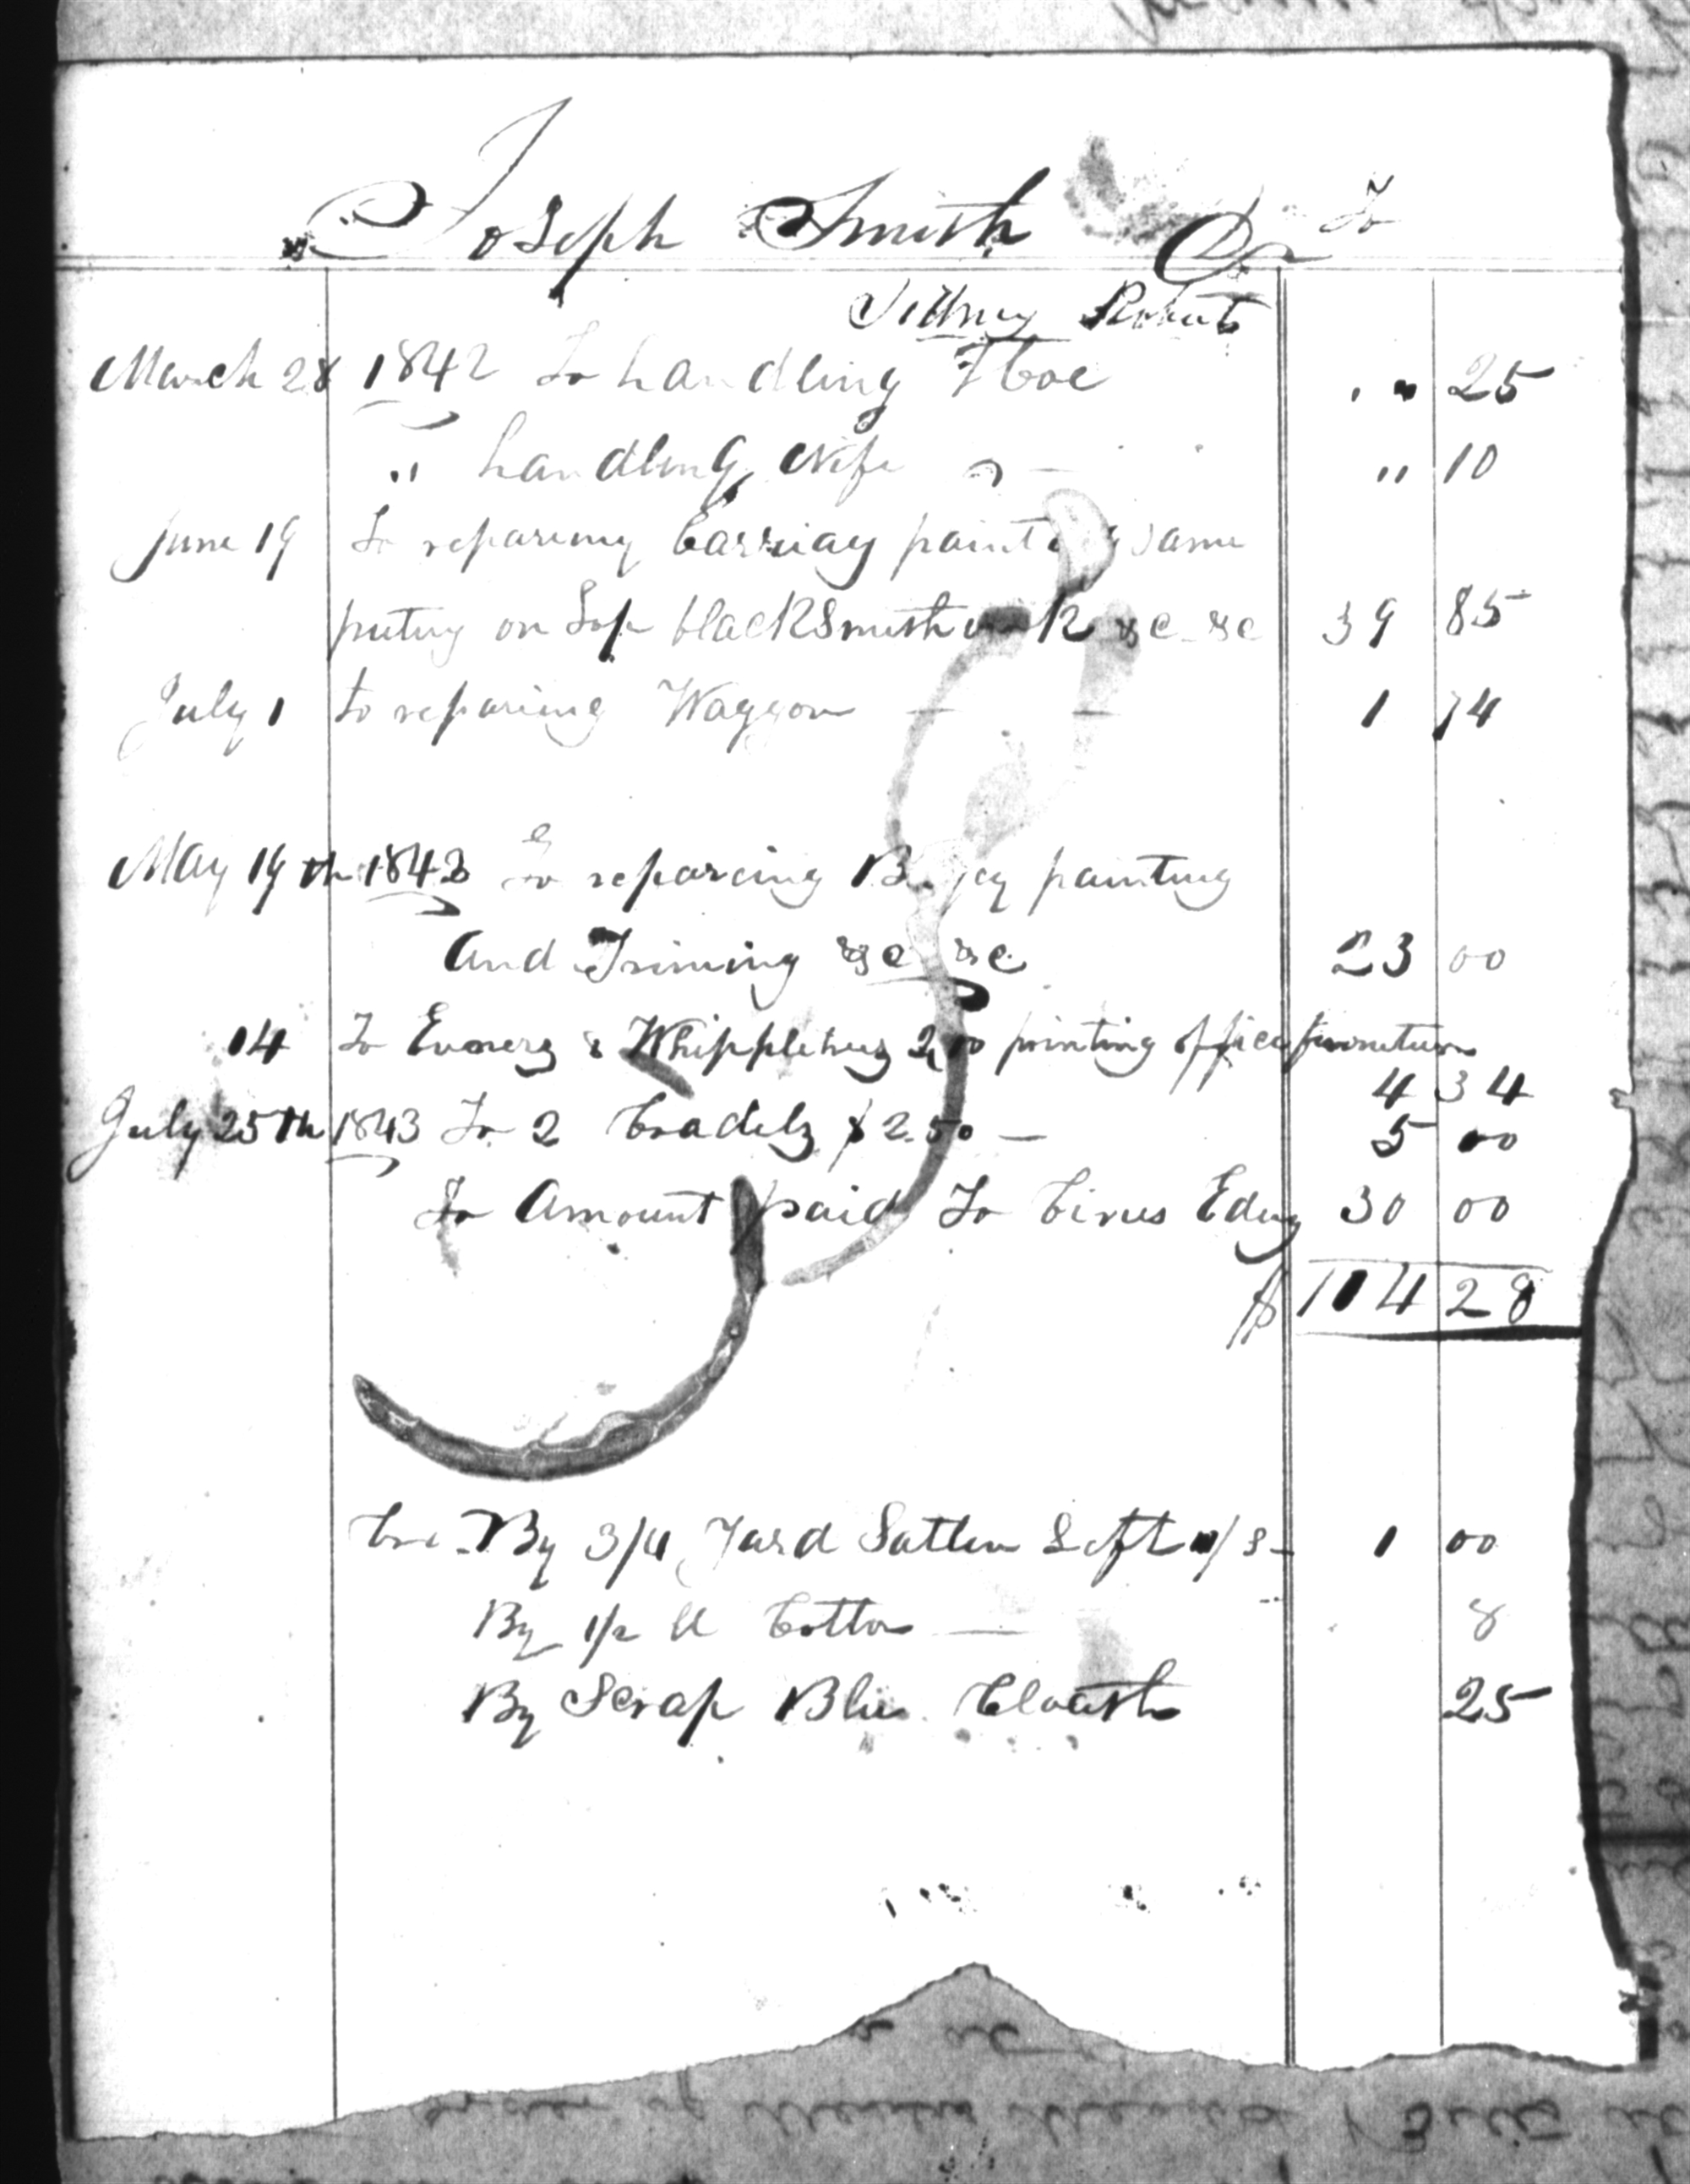 Joseph Smith Dr To
Sidney Roberts
March 28 1842 To handling Hoe " " 25
" handling Nife " 10
June 19 To reparing Carriag painting same
puting on Top blackSmith work &c &c 39 85
July 1 to reparing Waggon 1 74
May 19th 1843 To reparing Buggy painting
And Triming &c &c 23 00
14 To Evners & Whippletrees printing office furneture
4 34
July 25th 1843 To 2 Cradels $2.50 5 00
To Amount paid To Cirus Edey 30 00
$ 104 28
Cre. By 3/4 Yard Satten 1 00
By 1/2 Cotton 8
By Scrap Blue Cloath 25